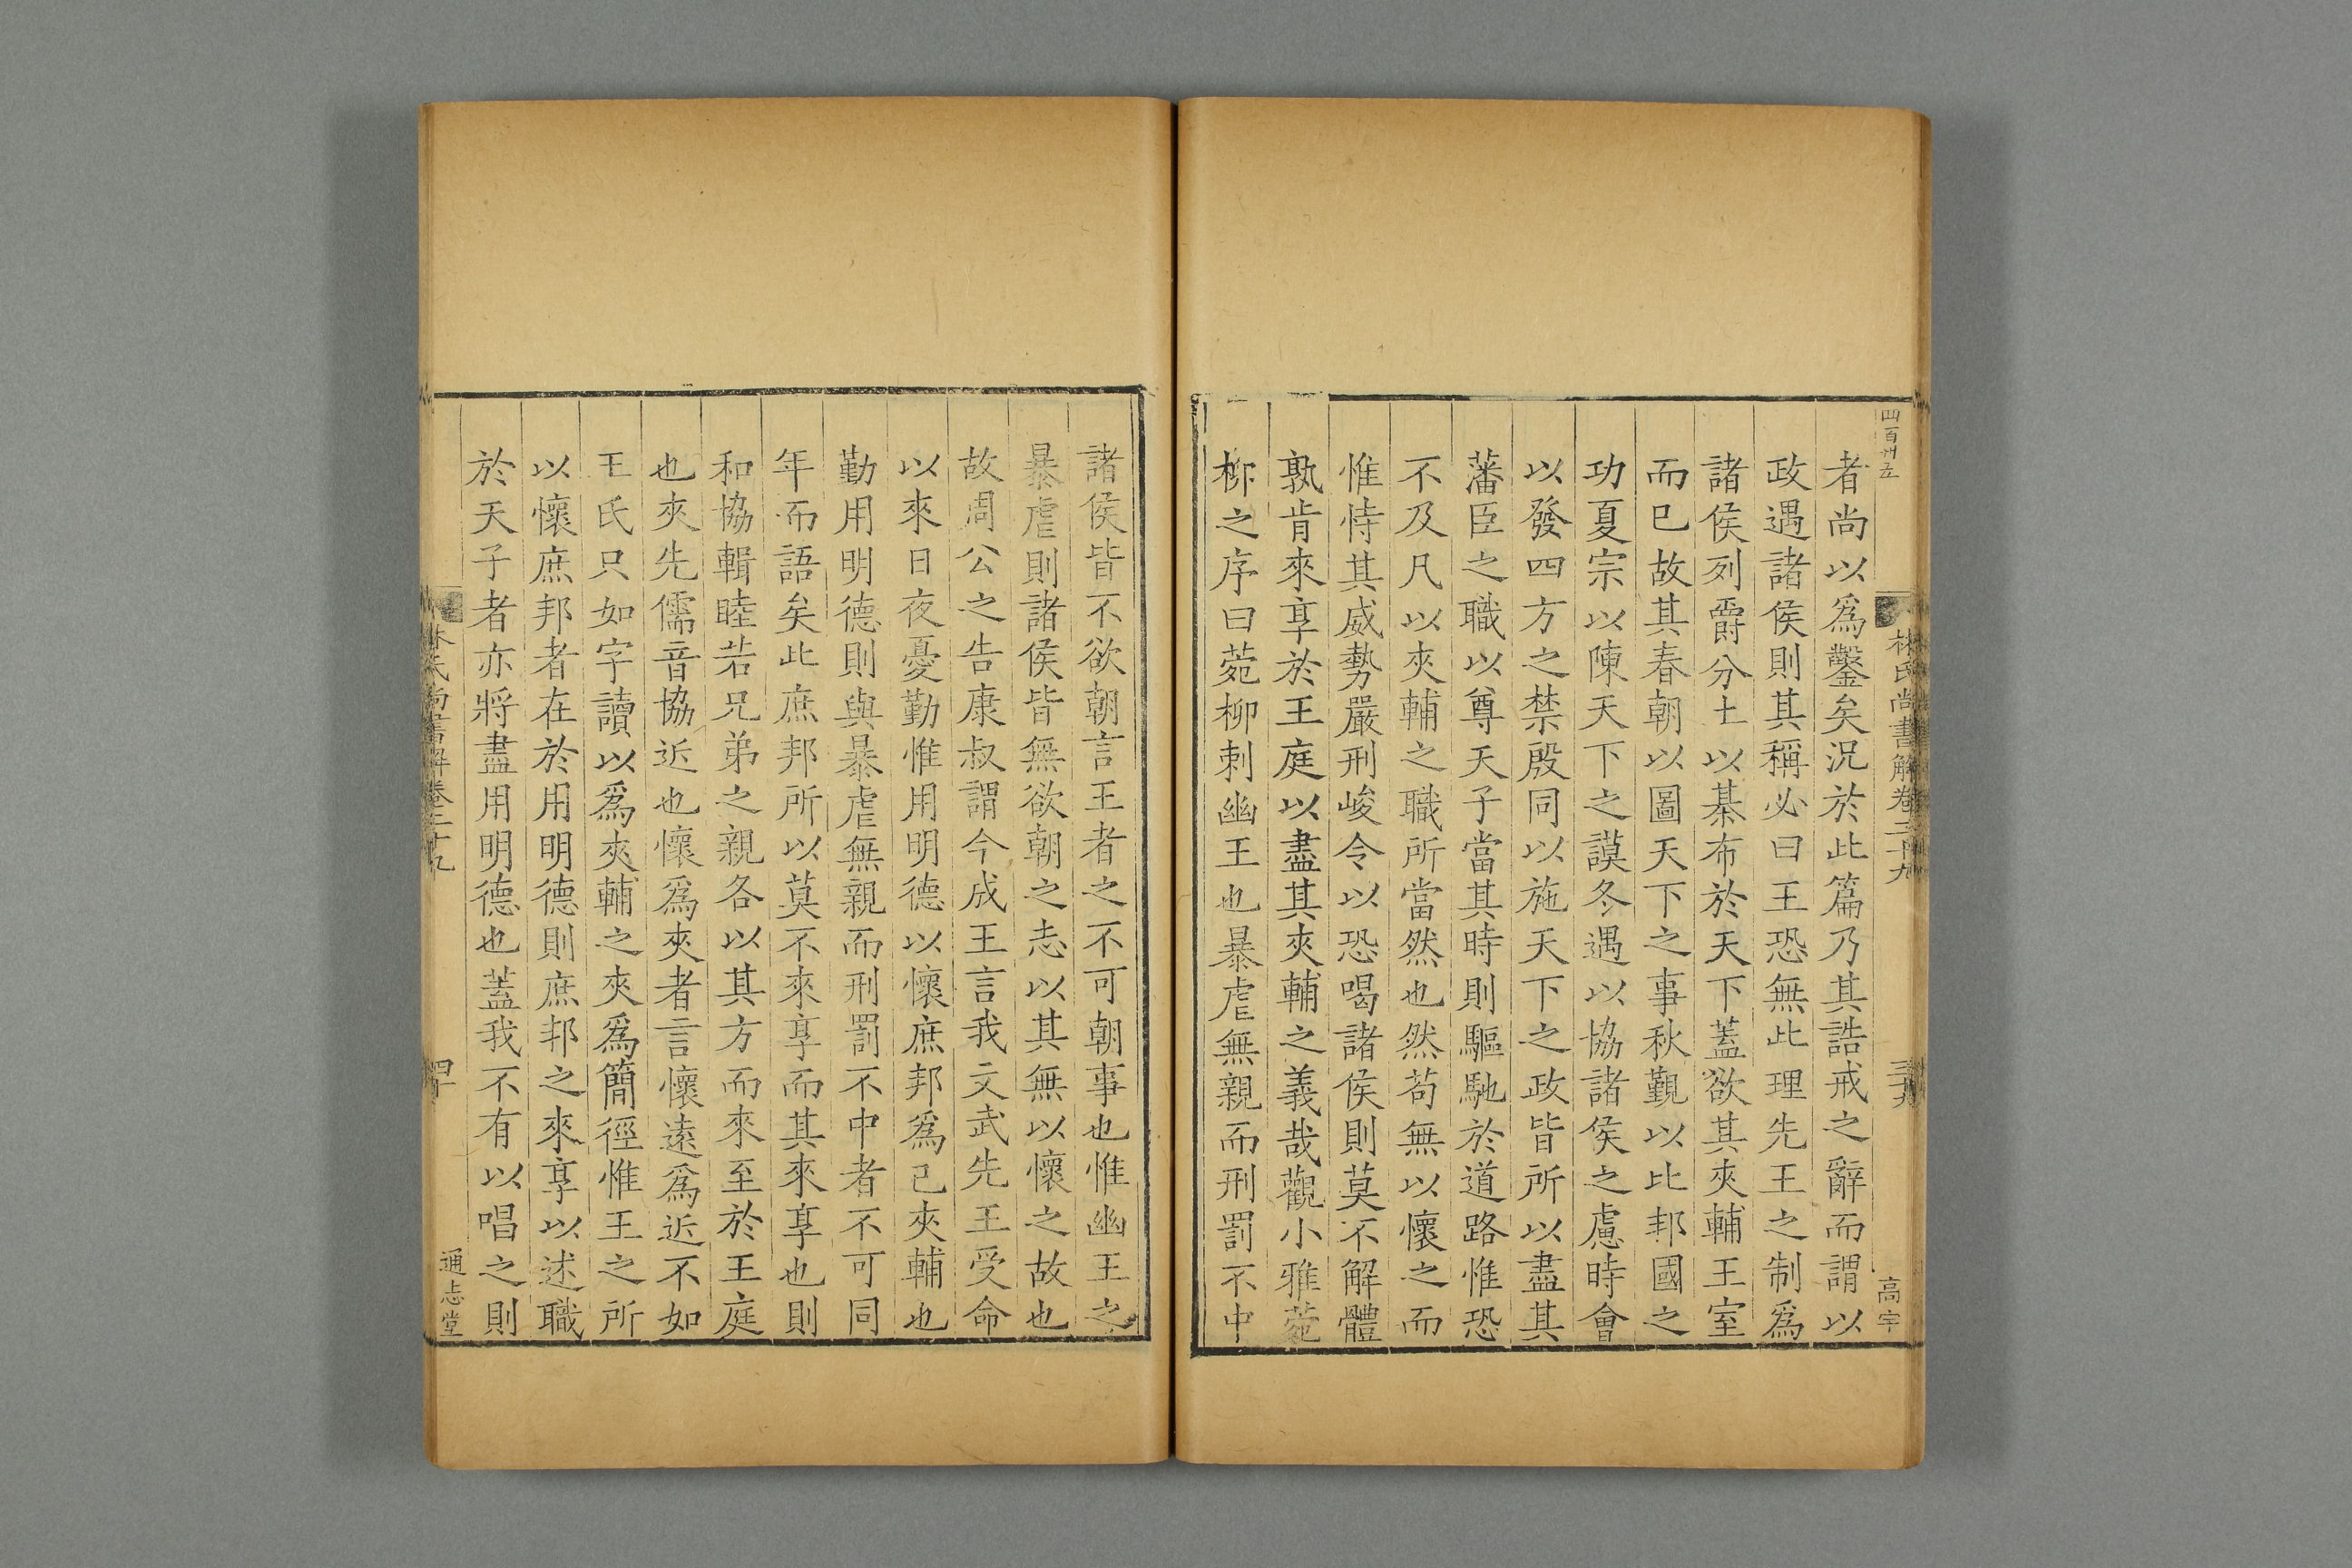 四百卅五
林氏尚書解卷二十九
三九
高宇
者尚以爲鑿矣況於此篇乃其誥戒之辭而謂以
政遇諸侯則其稱必曰王恐無此理先王之制爲
諸侯列爵分土以棊布於天下蓋欲其夾輔王室
而已故其春朝以圖天下之事秋覲以比邦國之
功夏宗以陳天下之謨冬遇以協諸侯之慮時會
以發四方之禁殷同以施天下之政皆所以盡其
藩臣之職以尊天子當其時則驅馳於道路惟恐
不及凡以夾輔之職所當然也然苟無以懷之而
惟恃其威勢嚴刑峻令以恐喝諸侯則莫不解體
孰肯來享於王庭以盡其夾輔之義哉觀小雅菀
柳之序曰菀柳刺幽王也暴虐無親而刑罰不中
諸侯皆不欲朝言王者之不可朝事也惟幽王之
暴虐則諸侯皆無欲朝之志以其無以懷之故也
故周公之告康叔謂今成王言我文武先王受命
以來日夜憂勤惟用明德以懷庶邦爲已夾輔也
勤用明德則與暴虐無親而刑罰不中者不可同
年而語矣此庶邦所以莫不來享而其來享也則
和協輯睦若兄弟之親各以其方而來至於王庭
也夾先儒音協近也懷爲夾者言懷遠爲近不如
王氏只如字讀以爲夾輔之夾爲簡徑惟王之所
以懷庶邦者在於用明德則庶邦之來享以述職
於天子者亦將盡用明德也蓋我不有以唱之則
林氏尚書解卷二十九
四十
通志堂